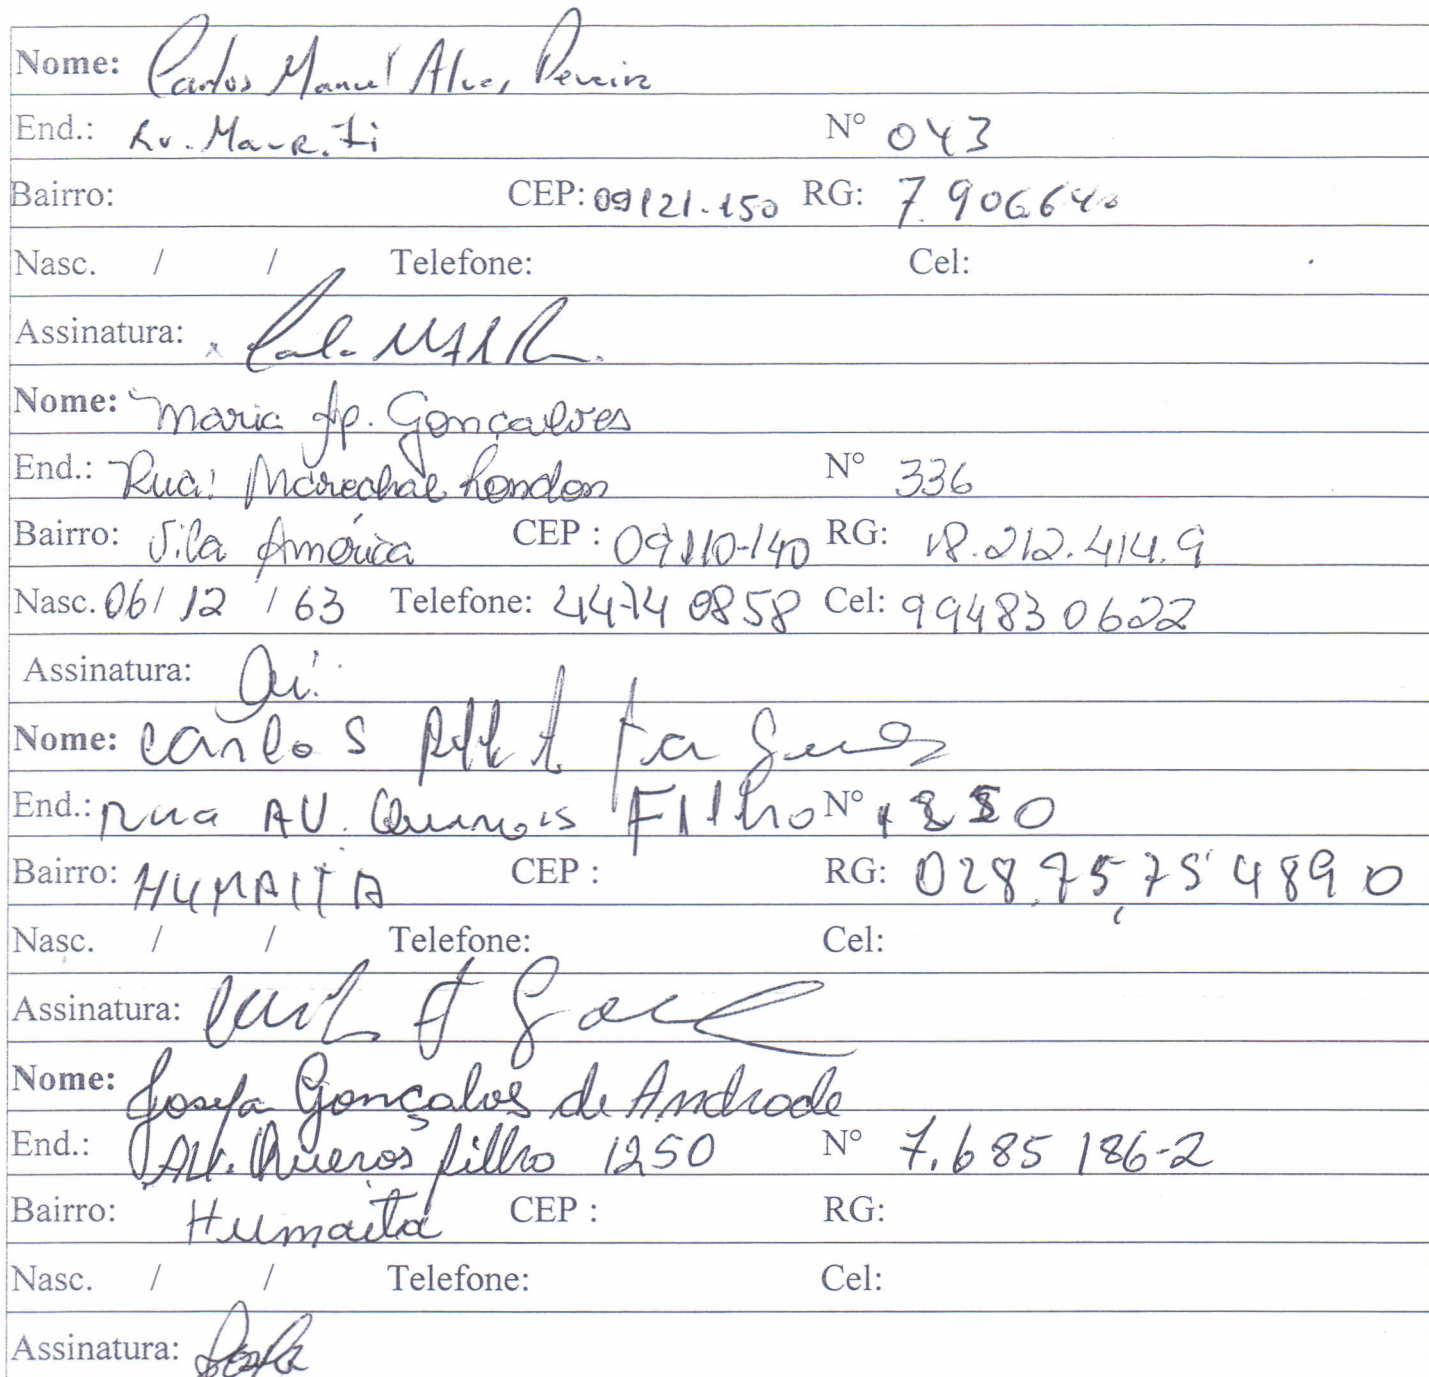 Nome: Carlos Manuel Alves Pereira
End.: Av. N° 043
Bairro: CEP: 09121-150 RG: 7.906640
Nasc. / / Telefone: Cel:
Assinatura:
Nome: Maria Ap. Gonçalves
End.: Rua: Marechal Rondon N° 336
Bairro: Vila América CEP : 09110-140 RG: 18.212.414.9
Nasc. 06/ 12 / 63 Telefone: 4474 0858 Cel: 99483 0622
Assinatura:
Nome: Carlos
End.: Rua AV. Filho N°
Bairro: HUMAITA CEP : RG: 028.75,75 4890
Nasc. / / Telefone: Cel:
Assinatura:
Nome: Josefa Gonçalves de Andrade
End.: AV. Queros filho 1250 N° 7.685 186-2
Bairro: Humaitá CEP : RG:
Nasc. / / Telefone: Cel:
Assinatura: